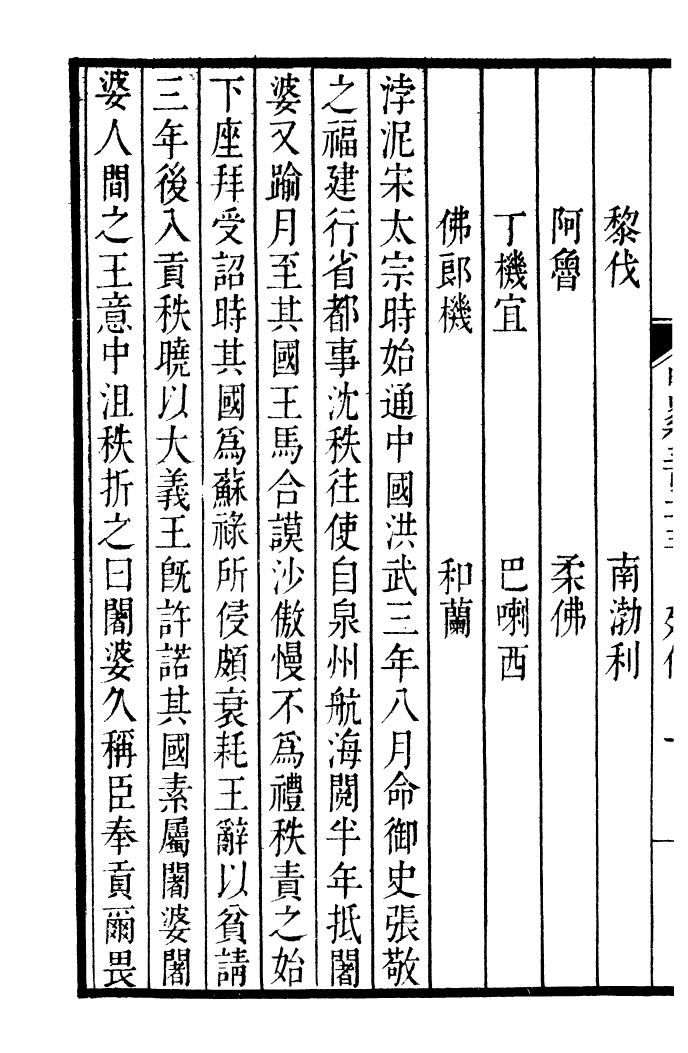 黎伐　南渤利
阿魯　柔佛
丁機宜　巴喇西
佛郎機　和蘭
浡泥宋太宗時始通中國洪武三年八月命御史張敬
之福建行省都事沈秩往使自泉州航海閱半年抵闍
婆又踰月至其國王馬合謨沙傲慢不為禮秩責之始
下座拜受詔時其國為蘇祿所侵頗衰耗王辭以貧請
三年後入貢秩曉以大義王旣許諾其國素屬闍婆闍
婆人間之王意中沮秩折之曰闍婆久稱臣奉貢爾畏